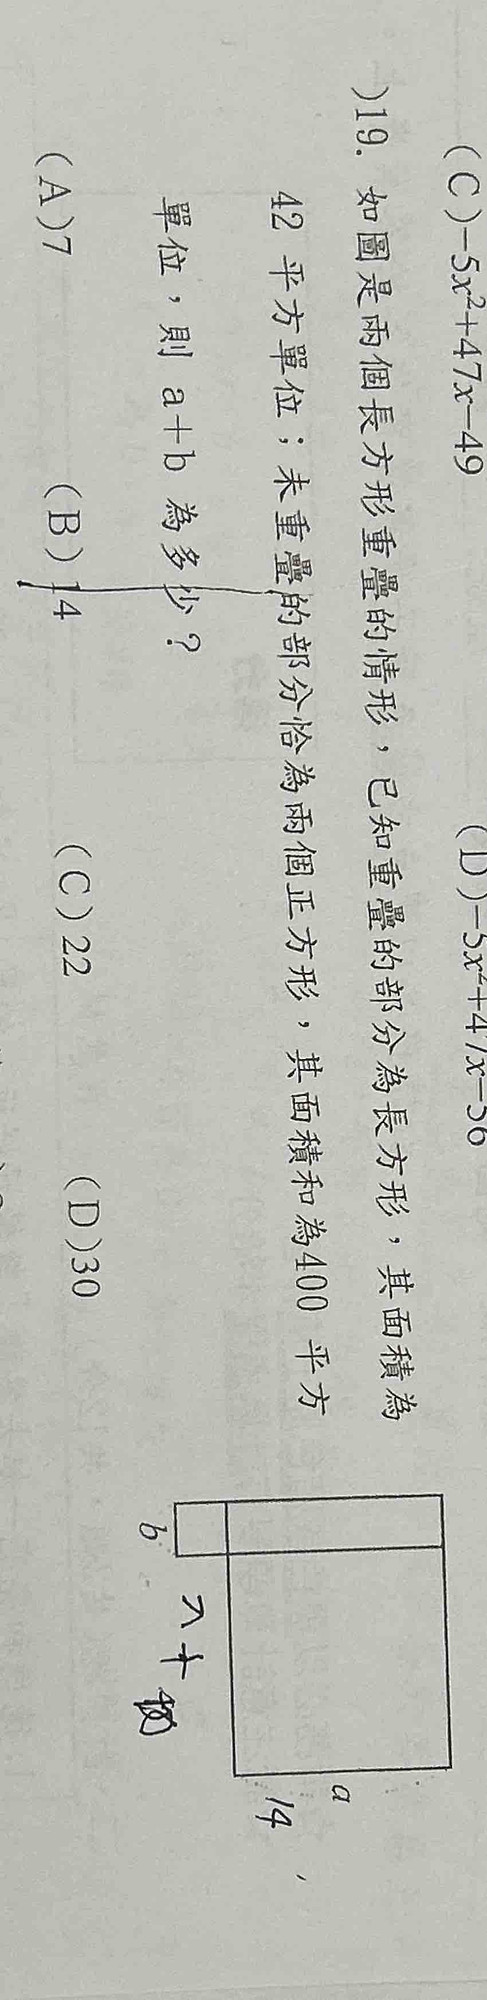 (C)-5x²+47x-49
(D)-5x²+47x-56
)19. 如圖是兩個長方形重疊的情形，已知重疊的部分為長方形，其面積為
42 平方單位；未重疊的部分恰為兩個正方形，其面積和為400 平方
單位，則 a+b 為多少？
(A)7
(B)14
(C)22
(D)30
a
14
b